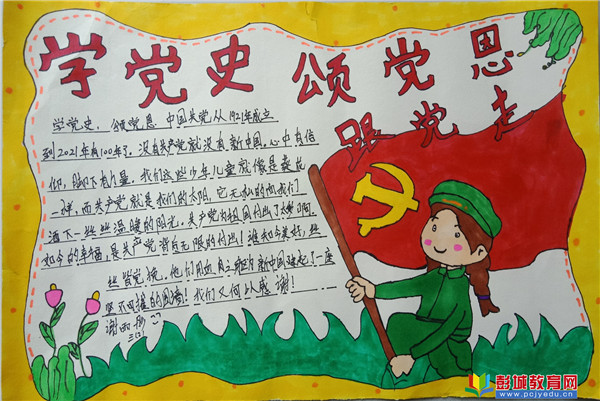 学党史 颂党恩
跟党走
学党史，颂党恩，中国共产党从1921年成立
到2021年有100年了。没有共产党就没有新中国，心中有信
仰，脚下有力量。我们这些少年儿童就像是葵花
一样，而共产党就是我们的太阳，它无私的向我们
洒下一丝丝温暖的阳光，共产党为祖国付出了
如今的幸福，是共产党背后无限的付出！谁知今美好，丝
丝皆党恩，他们用血肉之躯为新中国建起了一座
坚不可摧的围墙！我们又何以感谢！
彭城教育网
www.pcjyedu.cn